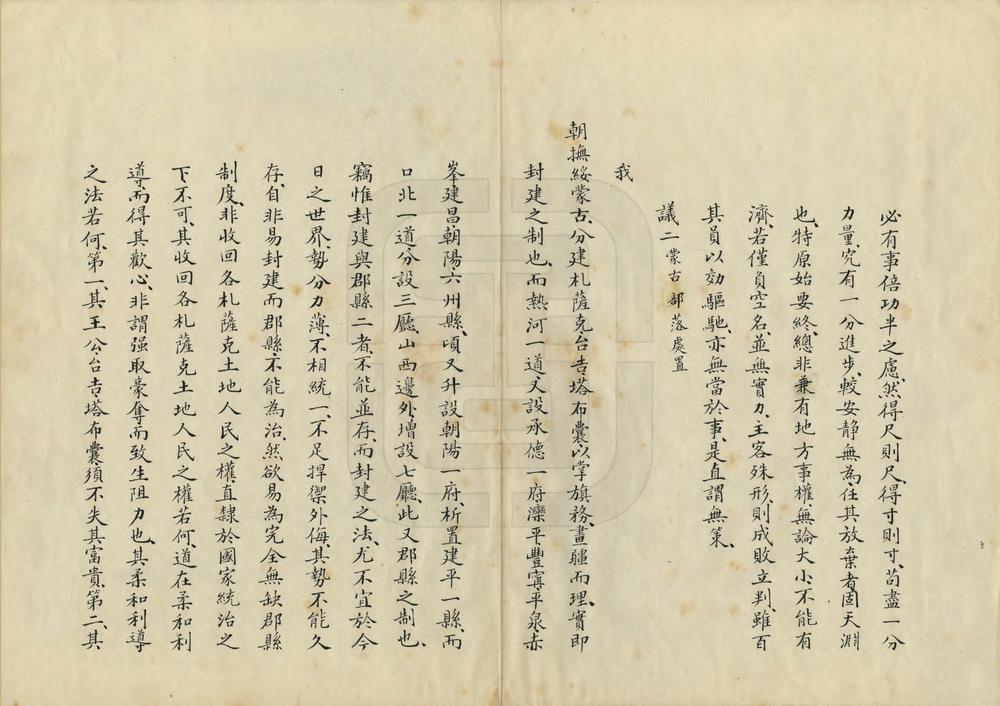 必有事倍功半之慮、然得尺則尺、得寸則寸、苟盡一分
力量、究有一分進步、較安静無為、任其放棄者、固天淵
也、特原始要終、總非兼有地方事權、無論大小、不能有
濟、若僅負空名、並無實力、主客殊形、則成敗立判、雖百
其員以効驅馳、亦無當於事、是直謂無策、
議二 蒙古部落處置
我
朝撫綏蒙古、分建札薩克台吉塔布囊、以掌旗務、畫疆而理、實即
封建之制也、而熱河一道、又設承德一府、灤平豐寧平泉赤
峯建昌朝陽六州縣、頃又升設朝陽一府、析置建平一縣、而
口北一道、分設三廳、山西邊外、增設七廳、此又郡縣之制也、
竊惟封建與郡縣二者、不能並存、而封建之法、尤不宜於今
日之世界、勢分力薄、不相統一、不足捍禦外侮、其勢不能久
存、自非易封建而郡縣、不能為治、然欲易為完全無缺郡縣
制度、非收回各札薩克土地人民之權、直隸於國家統治之
下不可、其收回各札薩克土地人民之權若何、道在柔和利
導、而得其歡心、非謂强取豪奪、而致生阻力也、其柔和利導
之法若何、第一、其王公台吉塔布囊、須不失其富貴、第二、其